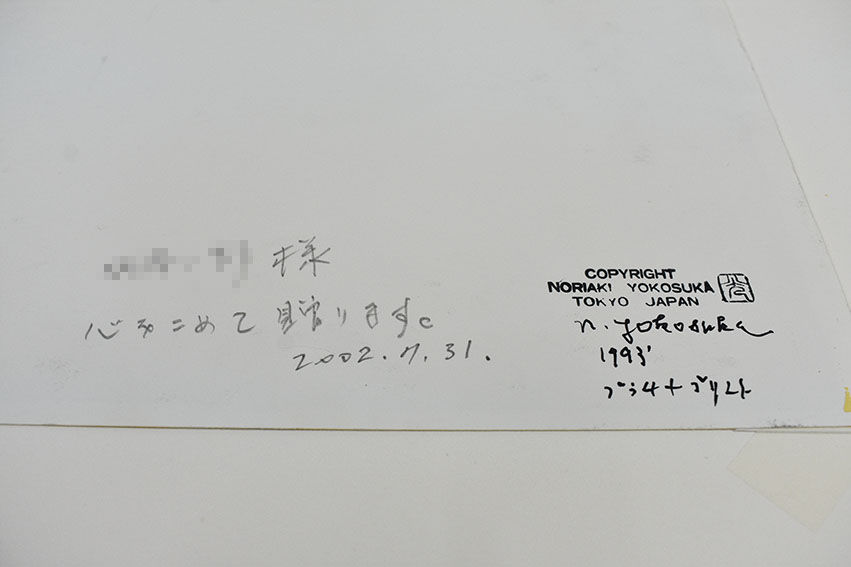 様
心をこめて贈ります。
2002.7.31.
COPYRIGHT
NORIAKI YOKOSUKA
TOKYO JAPAN
n. yokosuka
1993'
プラチナプリント